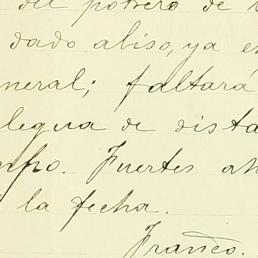 del potrero de
dado abiso, ya e
neral; faltará
legua de dista
Fuertes
la fecha.
Franco.